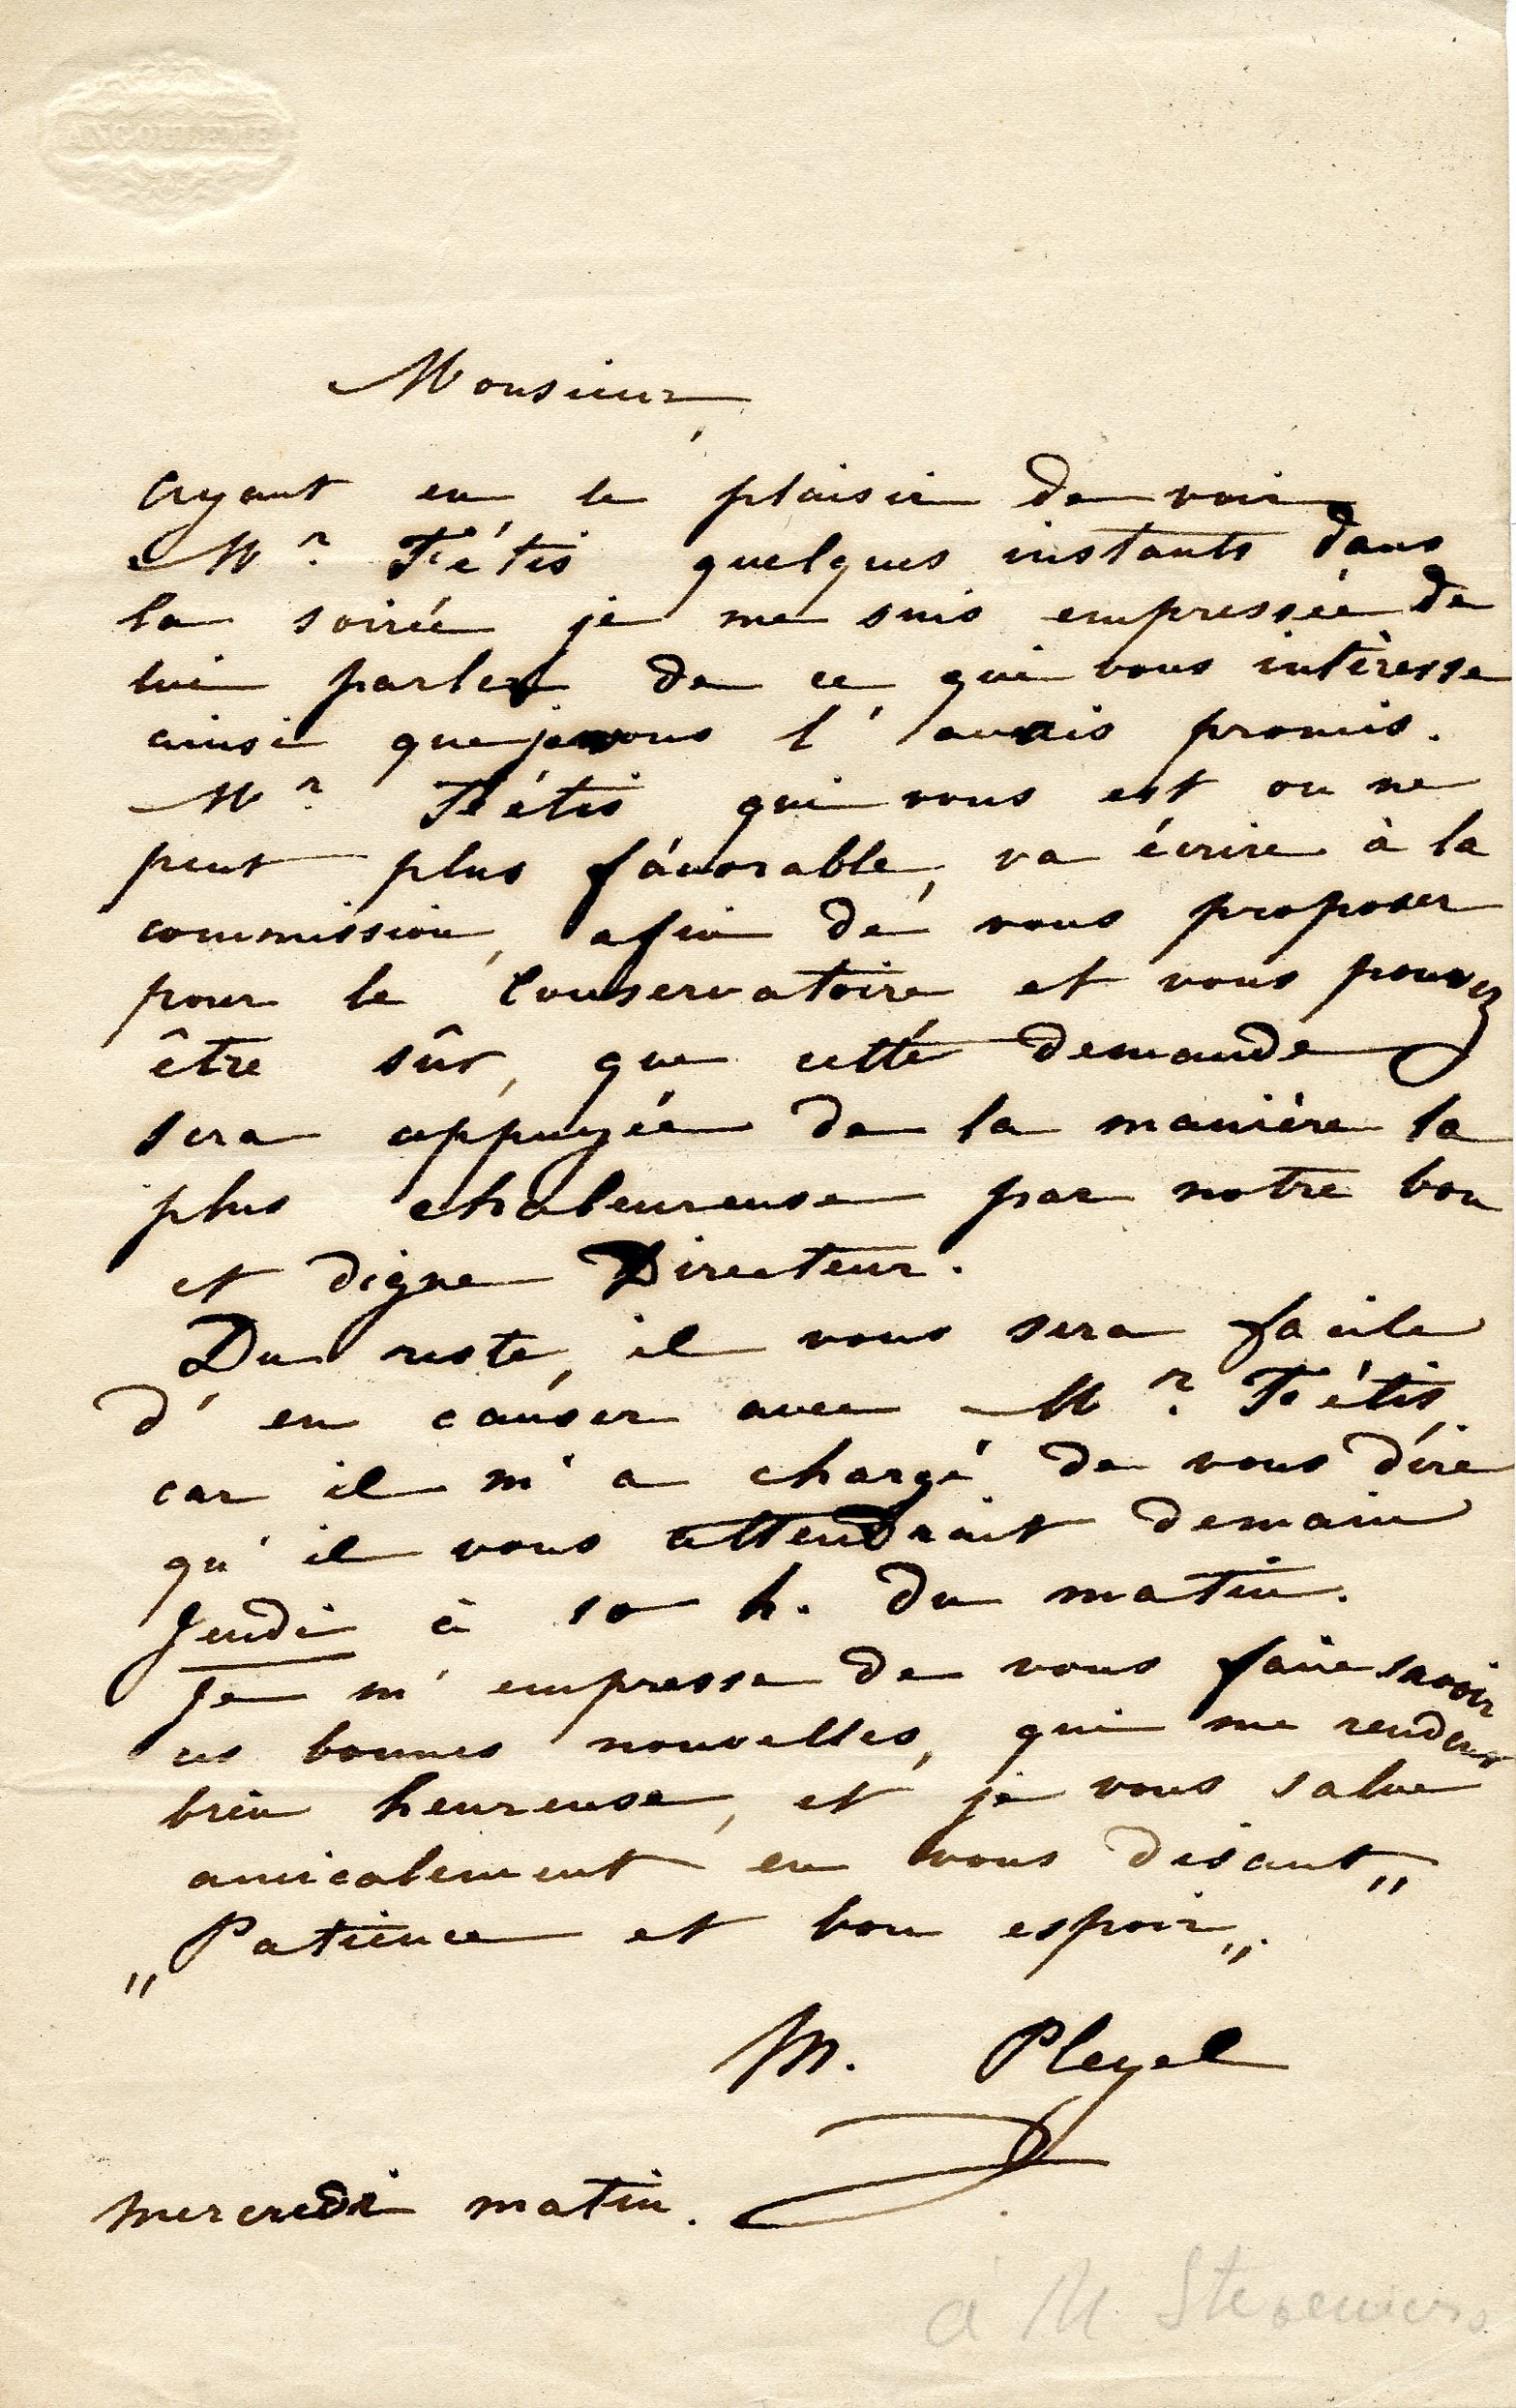 ANGOULEME
Monsieur,
Ayant eu le plaisir de voir
Mr. Fétis quelques instants dans
la soirée je me suis empressée de
lui parler de ce qui vous intèresse
ainsi que je vous l'avais promis.
Mr. Fétis qui vous est on ne
peut plus favorable, va écrire à la
commission, afin de vous proposer
pour le Conservatoire et vous pouvez
être sûr, que cette demande
sera appuyée de la manière la
plus chaleureuse par notre bon
et digne Directeur.
Du reste, il vous sera facile
d'en causer avec Mr. Fétis,
car il m'a chargé de vous dire
qu'il vous attendrait demain
Jeudi à 10 h. du matin.
Je m'empresse de vous faire savoir
ces bonnes nouvelles, qui me rendent
bien heureuse, et je vous salue
amicalement en vous disant „
„Patience et bon espoir„.
M. Pleyel
mercredi matin.
à M Steveniers